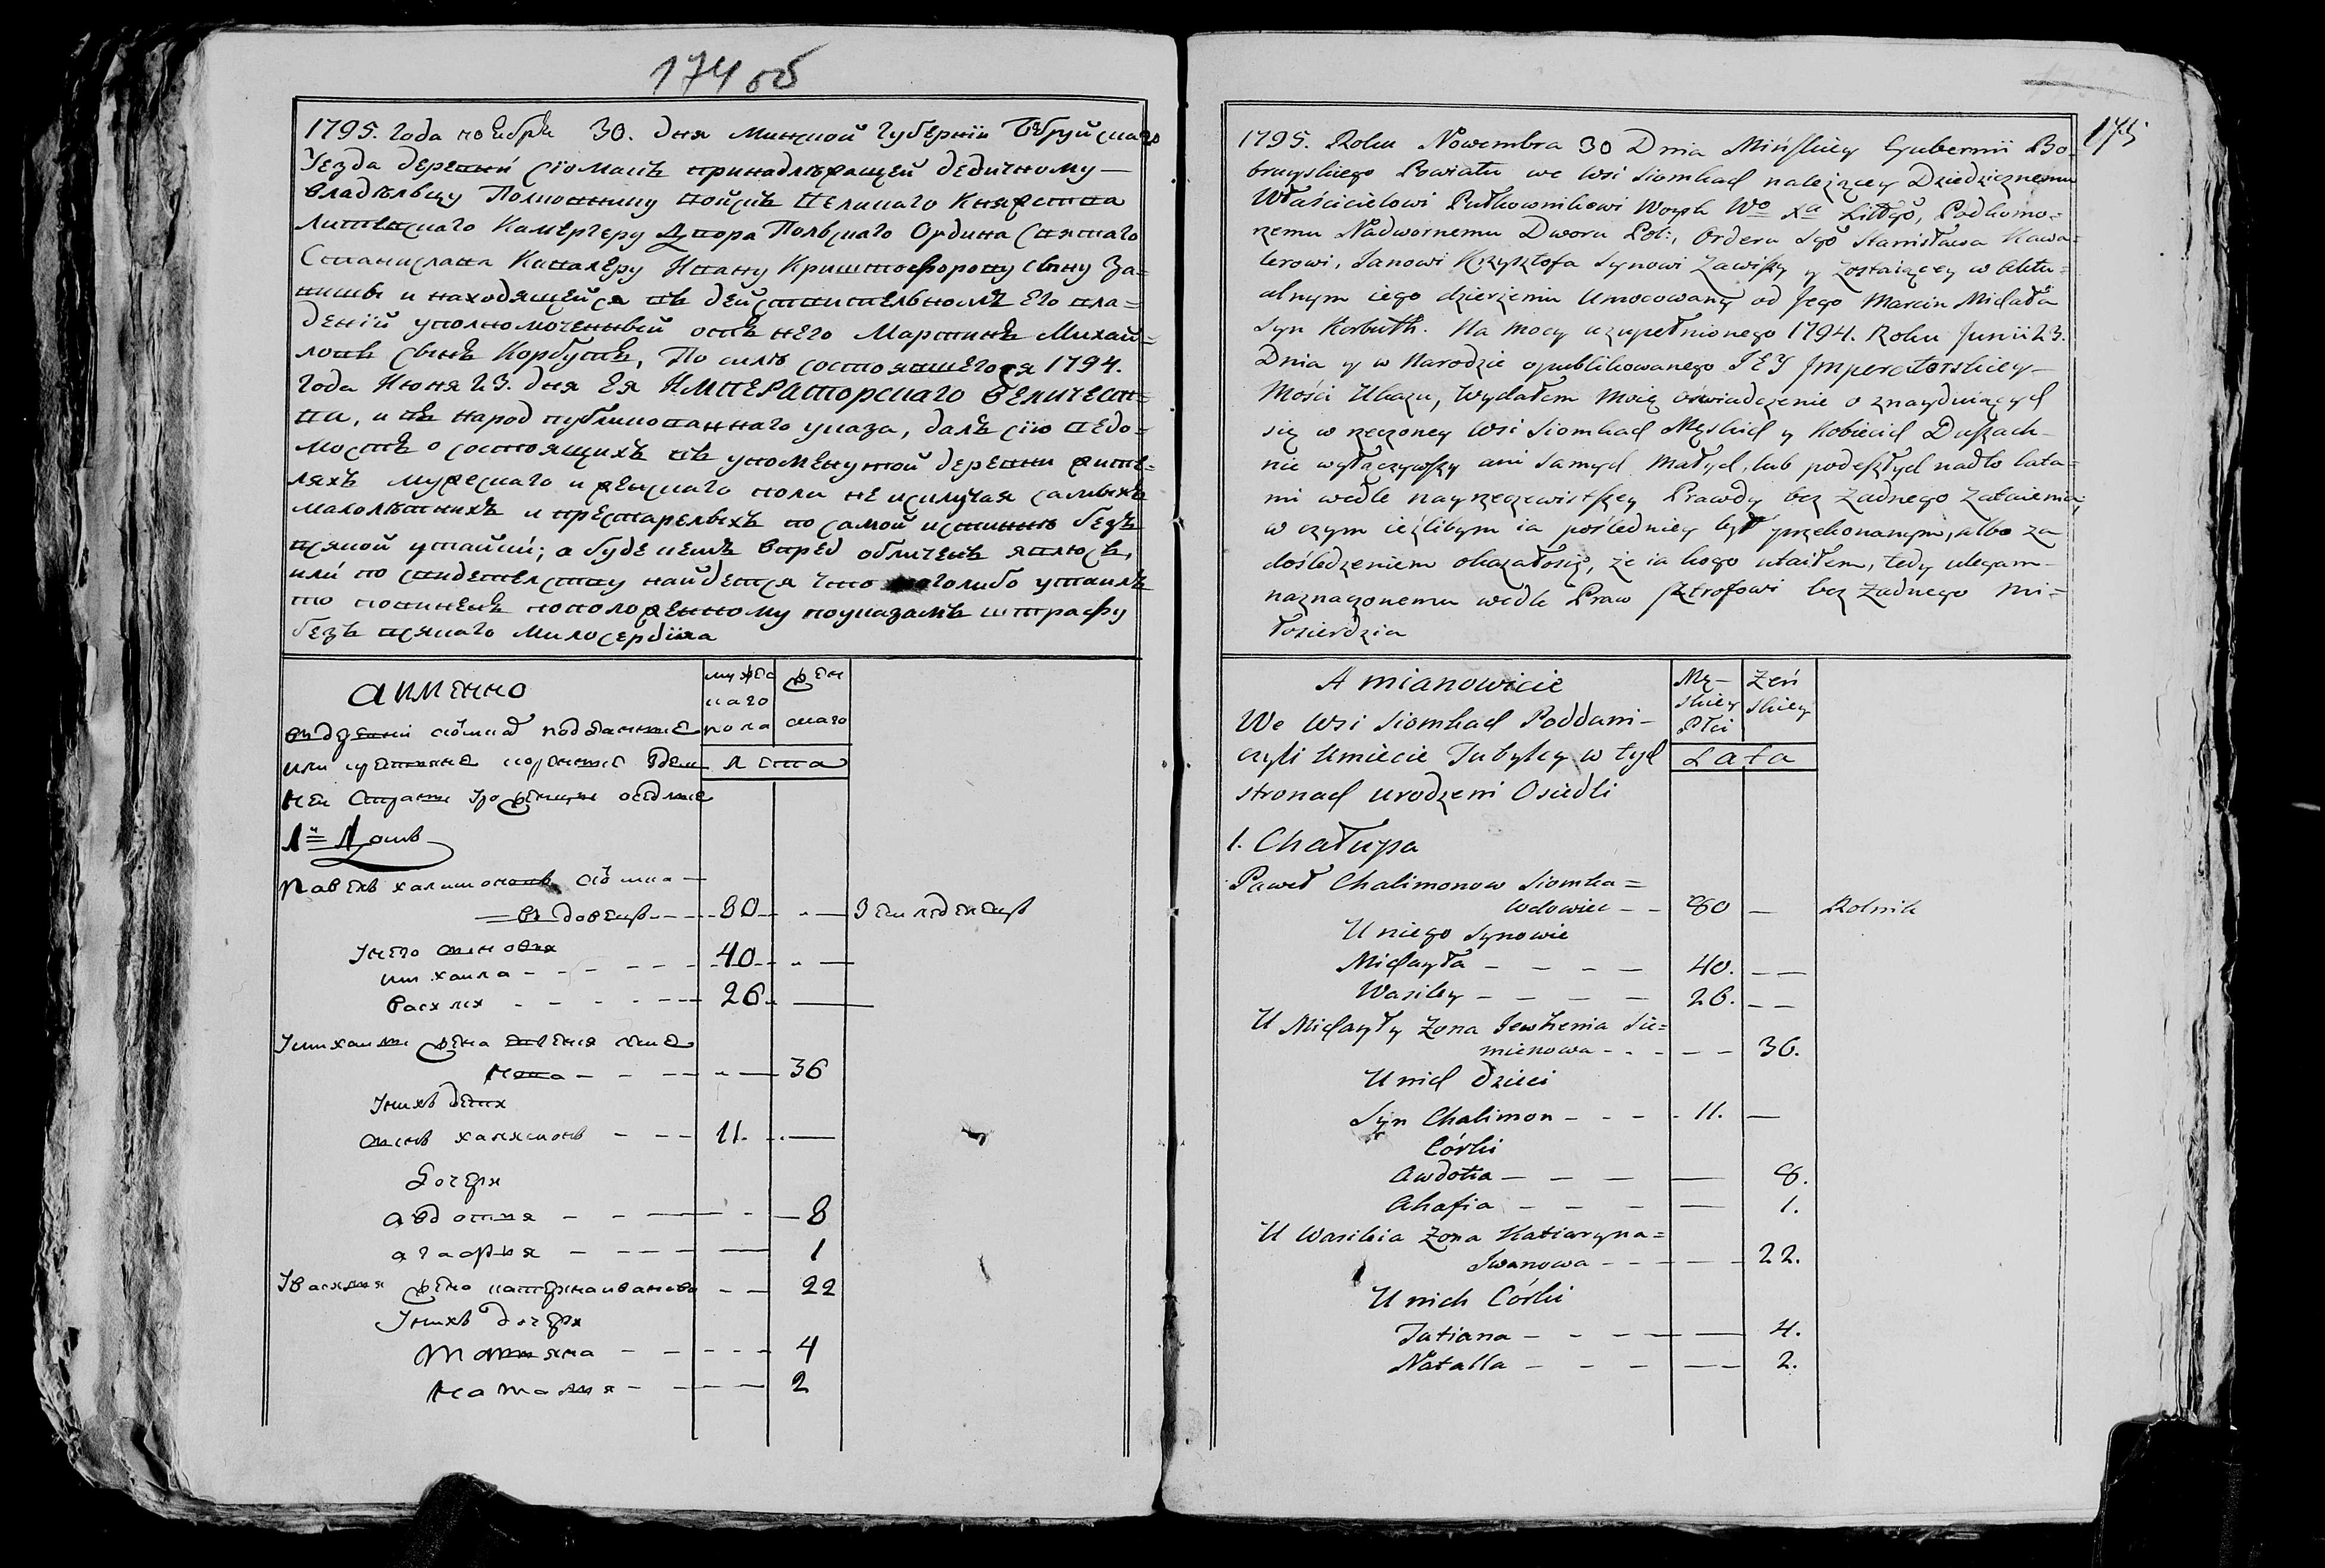 174 об
1795. года ноября 30. дня Минской Губернїи Бобруйскаго
Уезда деревни Сіомакъ принадлѣжащей дедичному —
владѣльцу Полковнику Войскъ Великаго Княжества
Литевскаго Камергеру Двора Польскаго Ордина Святаго
Станислава Кавалеру Ивану Криштофорову сыну За=
вишы и находящейся въ действительномъ его вла=
денїй уполномоченный отъ него Мартинъ Михай=
ловъ сынъ Корбутъ, По силѣ состоявшегося 1794.
года Июня 23. дня Ея Императорскаго Величест=
ва, и въ народ публикованнаго указа, далъ сїю ведо=
мость о состоящихъ въ упоменутой деревни жите=
ляхъ мужескаго и женскаго пола не исключая самыхъ
малолѣтнихъ и престарелыхъ по самой истинню безъ
всякой утайки; а буде чемъ впред обличенъ явлюсь,
или по свидетелству найдется что коголибо утаилъ
то повиненъ положенному поуказамъ штрафу
безъ всякаго милосердїиа
а именно
мужес
каго
пола
жен
скаго
въ дерєвни сіомках подданние
или крєстянє коренниє здєш
лєта
нєи страни урожєнци осєдлиє
1й Домъ
Павєлъ халимоновъ сіомка —
— вдовєцъ — — 80 — " — Зємлєдєлєцъ
У нєго синовя
михаила — — — — 40 — " —
васили — — — — 26 — —
У михаили жєна євгєния симє
нова — — " — 36
У нихъ дєти
синъ халимонъ — — — 11. — —
Дочєри
авдотия — — — — 8
агафия — — — — 1
У василия жєна катєринаиванова — — 22
У нихъ дочєри
татяна — — — — 4
наталия — — — 2
175
1795. Roku Nowembra 30 Dnia Mińskiey Gubernii Bo=
bruyskiego Powiatu we Wsi Siomkach należącey Dziedzicznemu
Właścicielowi Pułkownikowi Woysk Wo Xa Littgo, Podkomo=
rzemu Nadwornemu Dworu Pol:, Ordera Sgo Stanisława Kawa=
lerowi, Janowi Krzysztofa Synowi Zawiszy y zostaiącey w Aktu=
alnym iego dzierżeniu Umocowany od Jego Marcin Michała
Syn Korbuth. Na mocy uzupełnionego 1794. Roku Junii 23.
Dnia y w Narodzie opublikowanego JEY Imperatorskiey —
Mości Ukazu, wydałem moię oświadczenie o znayduiących
się w rzeczoney Wsi Siomkach Męskich y Kobiecich Duszach —
nie wyłączywszy ani samych małych, lub podeszłych nadto lata=
mi wedle nayrzeczewistszey Prawdy bez żadnego zataienia,
w czym ieżlibym ia poślednieg był przekonanym, albo za
dośledzeniem okazałosię, że ia kogo utaiłem, tedy ulegam —
naznaczonemu wedle Praw sztrofowi bez żadnego mi=
łosierdzia
A mianowicie
Mę—
skiey
Płci
Żeń
skiey
We Wsi Siomkach Poddani —
czyli Kmiecie Tubylcy w tych
Lata
stronach urodzeni Osiedli
1. Chałupa
Paweł Chalimonow Siomka =
Wdowiec — — 80 — Rolnik
U niego Synowie
Michayła — — — — 40. — —
Wasiley — — — — 26. — —
U Michayły Żona Jewhenia Sie=
mienowa — — — — — 36.
U nich dzieci
Syn Chalimon — — — 11. —
Córki
Awdotia — — — — 8.
Ahafia — — — — 1.
U Wasilia Żona Katiaryna =
Iwanowa — — — — — 22.
U nich Córki
Tatiana — — — — — 4.
Natalla — — — — — 2.